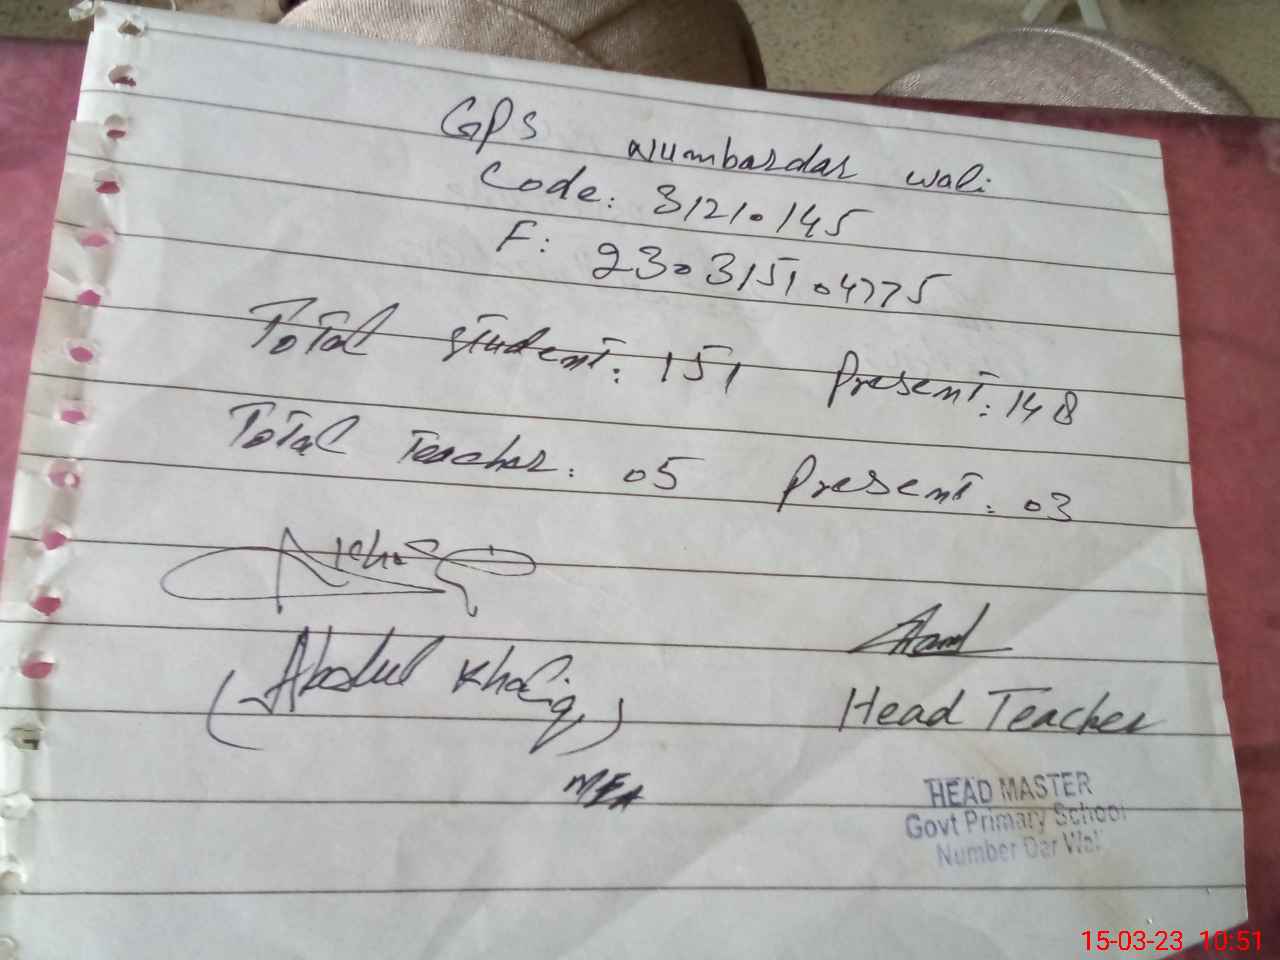 GPS Numbardar wali
Code: 31210145
F: 230315104775
Total student: 151 Present: 148
Total Teacher: 05 Present: 03
(Abdul Khaliq)
MEA
Head Teacher
HEAD MASTER
Govt Primary School
Number Dar Wali
15-03-23 10:51